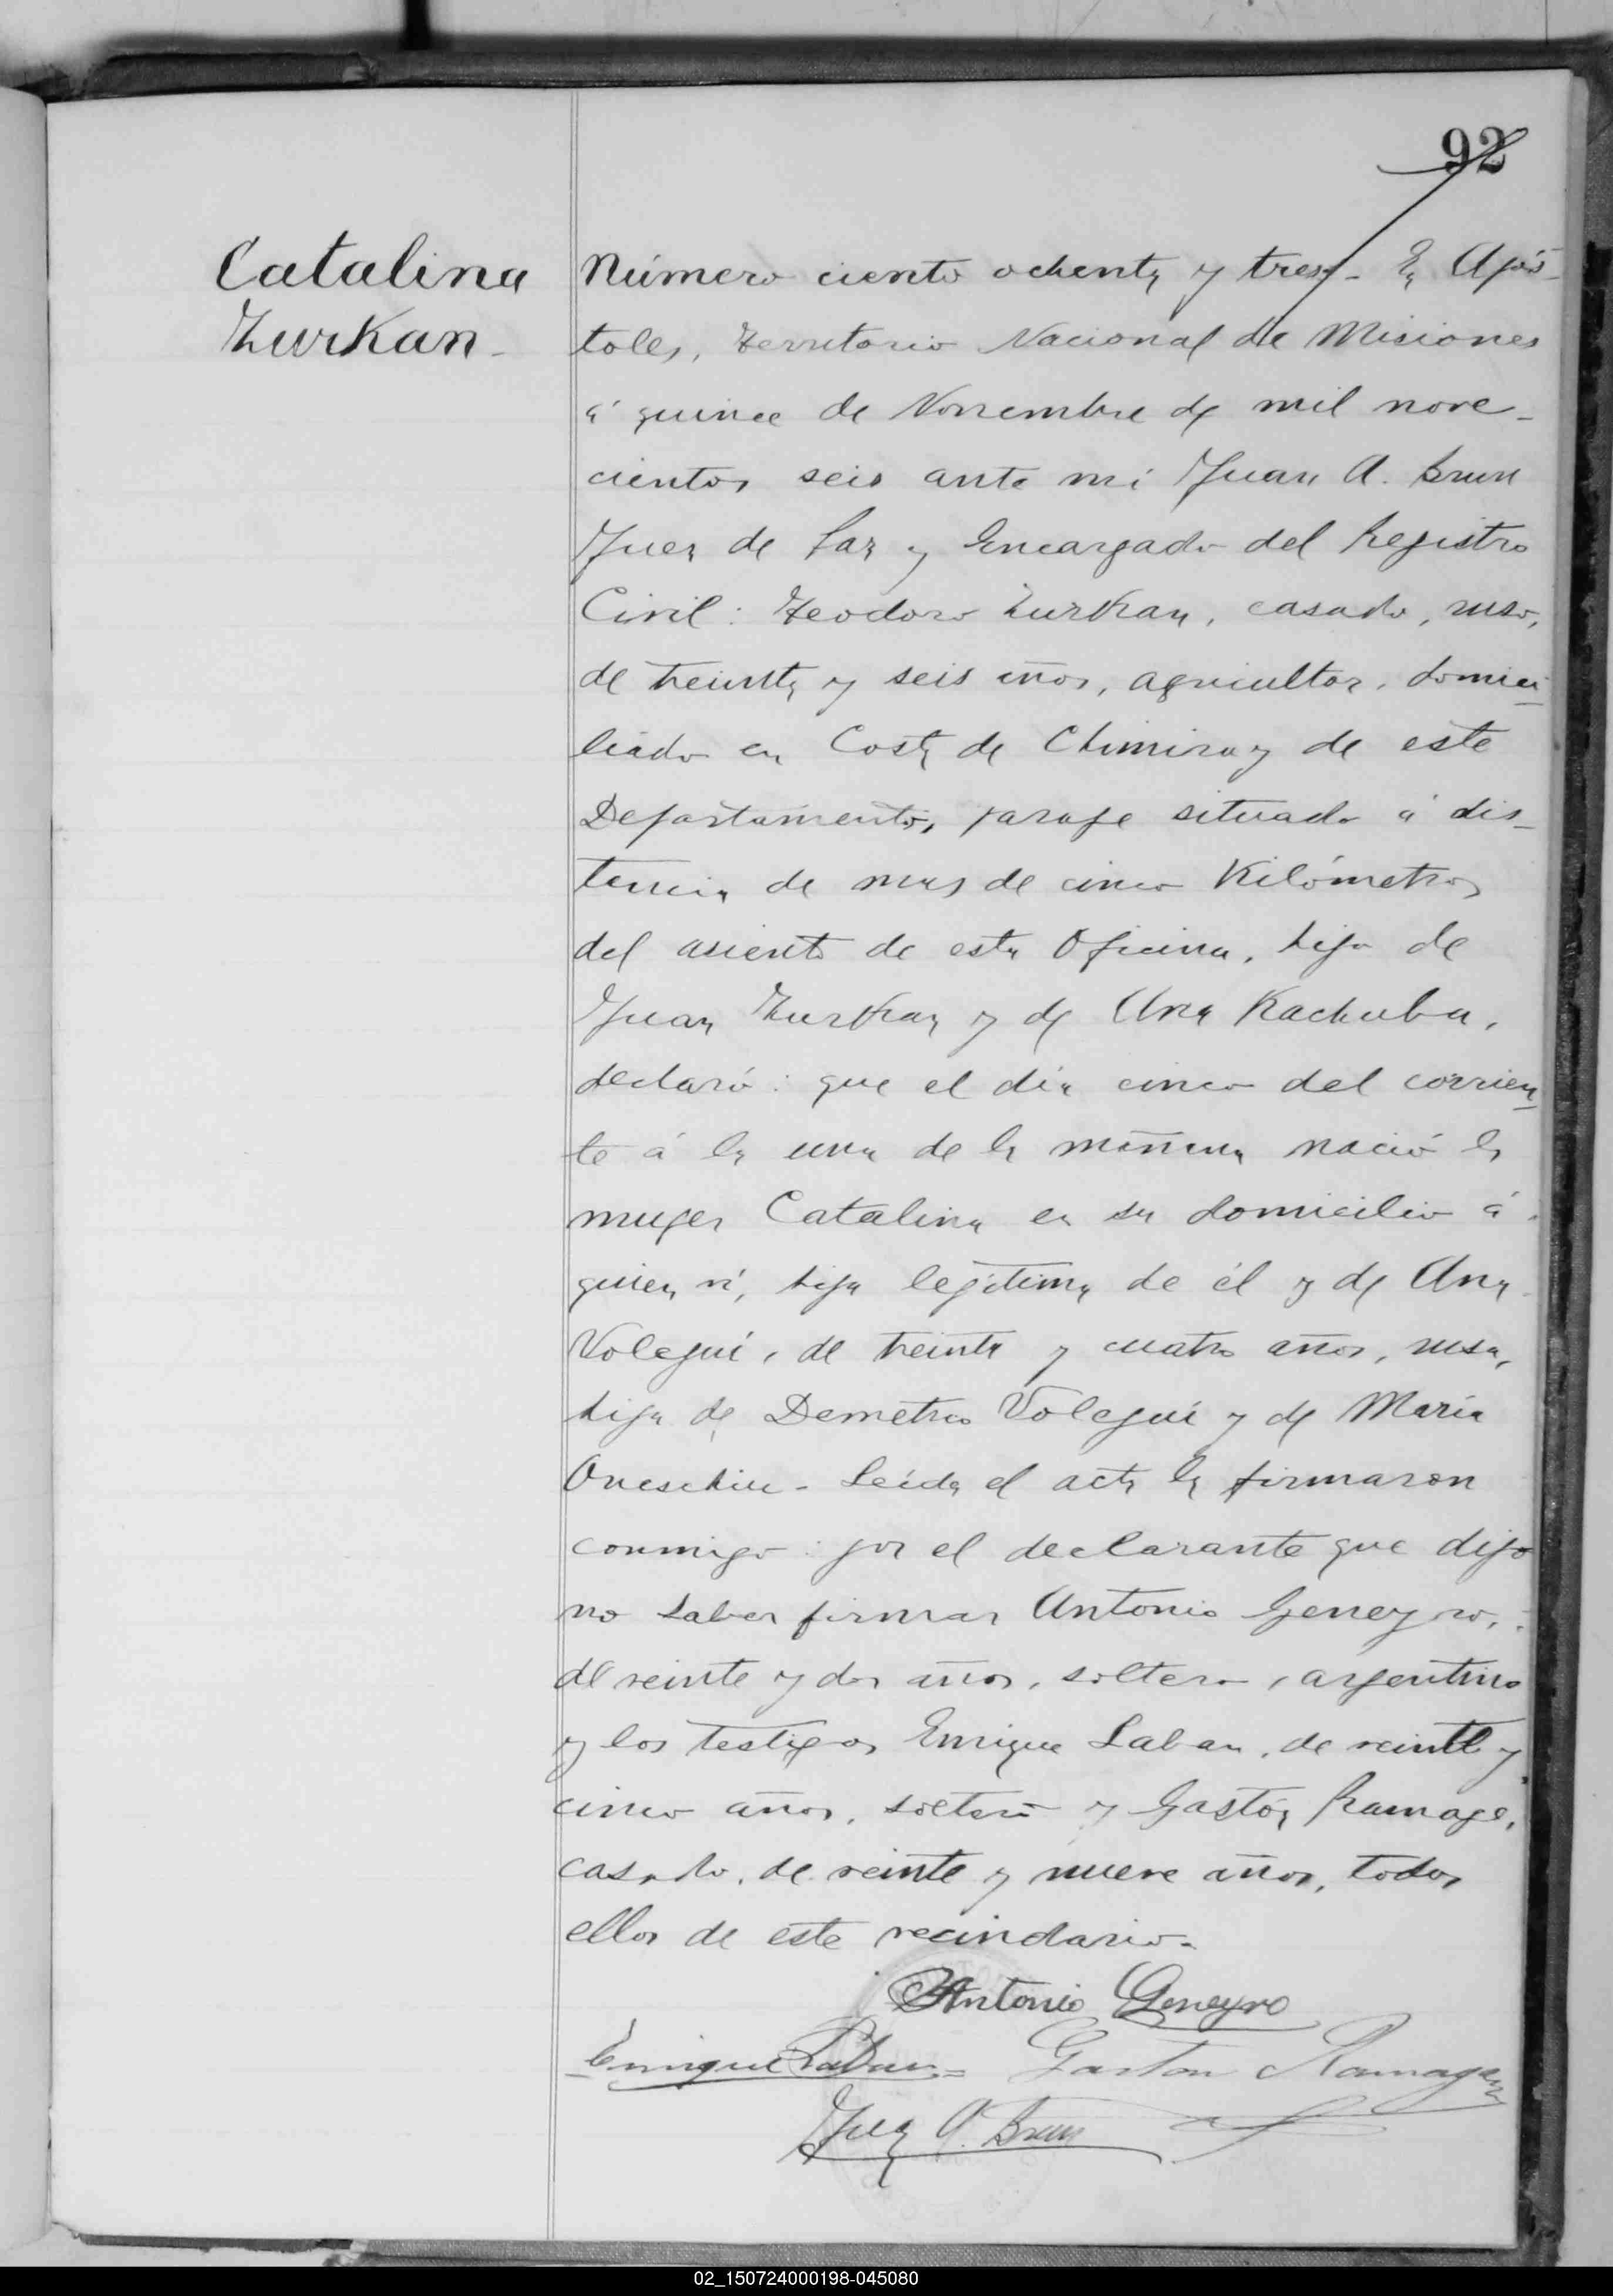 92
Catalina
Zurkan-
Número ciento ochenta y tres- En Após-
toles, Territorio Nacional de Misiones
á quince de Noviembre de mil nove-
cientos seis ante mi Juan A. Brun
Juez de Paz y Encargado del Registro
Civil: Teodoro Zurkan, casado, ruso,
de treinta y seis años, agricultor, domici-
liado en Costa de Chimiray de este
Departamento, paraje situado á dis-
tancia de mas de cinco Kilómetros
del asiento de esta Oficina, hijo de
Juan Zurkan y de Ana Kachuba,
declaró: que el día cinco del corrien-
te á la una de la mañana nació la
muger Catalina en su domicilio á
quien ví, hija legítima de él y de Ana
Volegui, de treinta y cuatro años, rusa,
hija de Demetrio Volegui y de María
Oneschiu- Leída el acta la firmaron
conmigo: por el declarante que dijo
no saber firmar Antonio Geneyro,
de veinte y dos años, soltero, argentino
y los testigos Enrique Laban, de veinte y
cinco años, soltero y Gastón Ramage,
casado, de veinte y nueve años, todos
ellos de este vecindario-
Antonio Geneyro
Enrique Laban= Gaston Ramage
Juan A. Brun
02_150724000198-045080